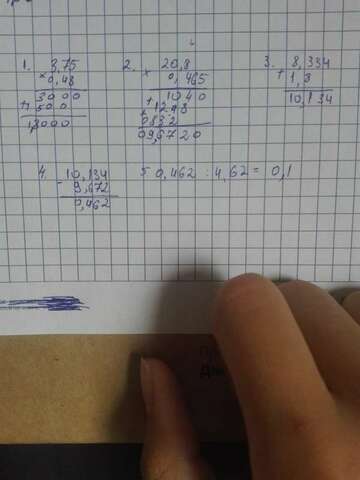 1. 3,75
× 0,48
3000
+ 1500
1,8000
2. 20,8
× 0,465
1040
+ 1248
+ 0832
09,6720
3. 8,334
+ 1,8
10,134
4. 10,134
- 9,672
0,462
5. 0,462 : 4,62 = 0,1